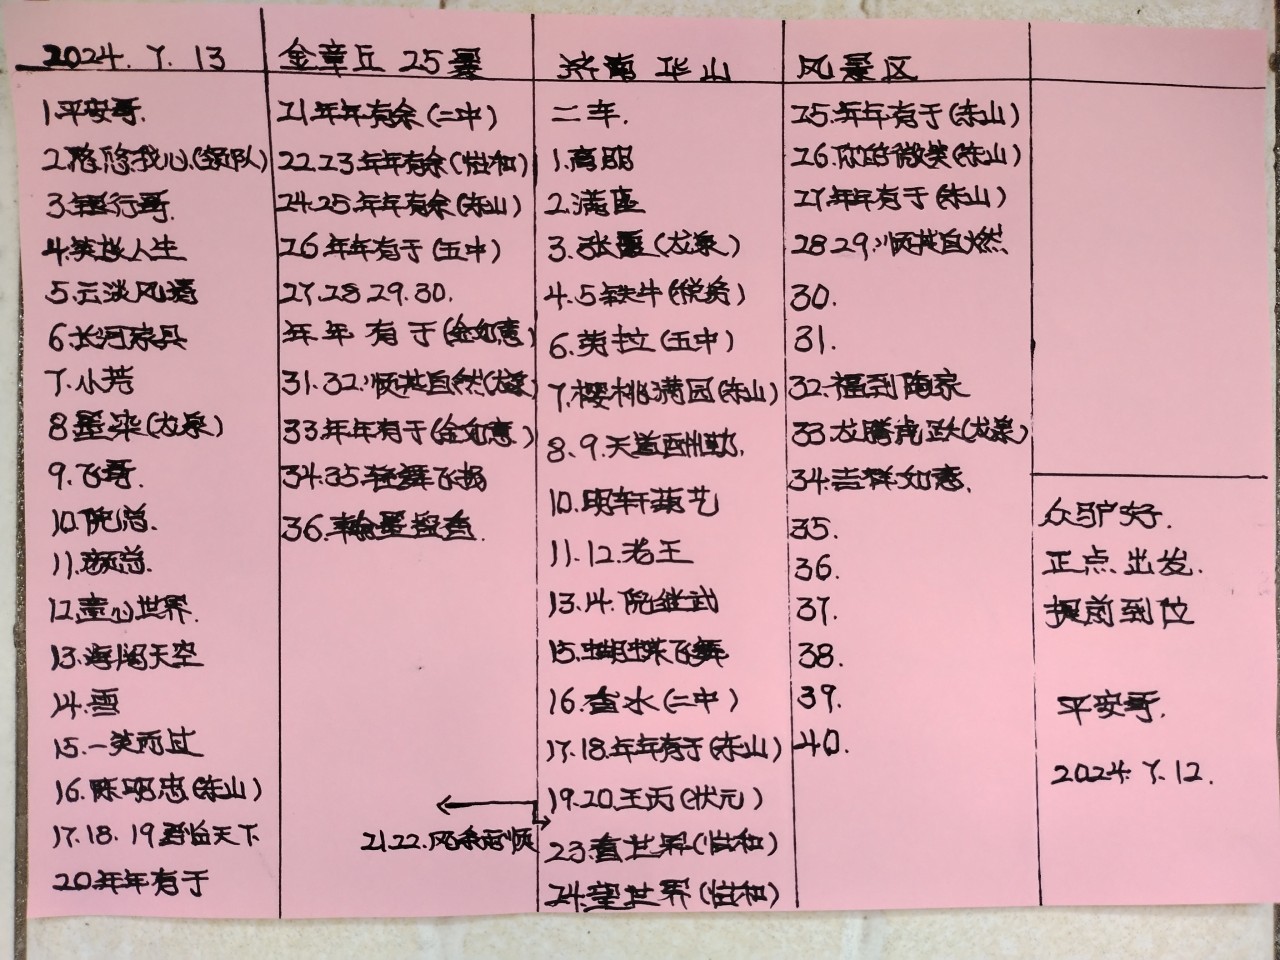 2024. 7. 13
1.平安哥.
2.悠悠我心.(领队)
3.银行哥.
4.笑谈人生
5.云淡风清
6.长河家具
7.小芳
8.墨染(龙泉)
9.飞哥.
10.倪总.
11.颜总.
12.童心世界.
13.海阔天空
14.雪
15.一笑而过
16.陈明忠(东山)
17.18.19君临天下
20.年年有于
金章丘 25
21.年年有余(二中)
22.23年年有余(怡和)
24.25.年年有余(东山)
26年年有于(五中)
27.28 29.30.
年年有于(金如意)
31.32.顺其自然(龙泉)
33.年年有于(金如意)
34.35.轻舞飞扬
36.翰墨
21.22.风条雨顺
济南 华山
二车.
1.高明
2.满座
3.张霞(龙泉)
4.5铁牛(税务)
6.芳拉(五中)
7.樱桃满园(东山)
8.9.天道酬勤.
10.明轩蔬艺
11.12.老王
13.14.倪继武
15.蝴蝶飞舞
16.香水(二中)
17.18.年年有于(东山)
19.20.王丙(状元)
23.看世界(怡和)
24.望世界(怡和)
风景区
25.年年有于(东山)
26.你的微笑(东山)
27.年年有于(东山)
28 29.顺其自然.
30.
31.
32.福到陶家
33.龙腾虎跃(龙泉)
34.吉祥如意.
35.
36.
37.
38.
39.
40.
众驴好.
正点出发.
提前到位
平安哥.
2024. 7. 12.